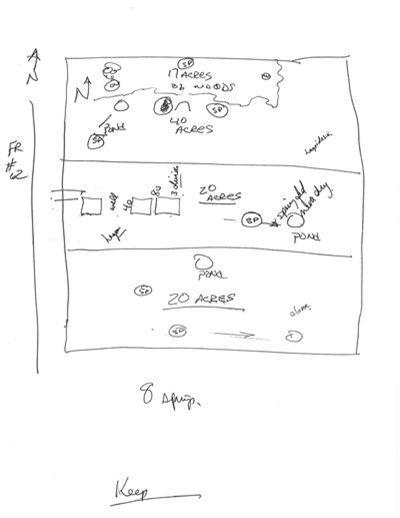 N
SP
17 ACRES
OF WOODS
N
SP
40
ACRES
POND
SP
FR
#
62
well
40
80
3
20
ACRES
SP
spring
POND
POND
SP
20 ACRES
SP
8 springs.
Keep